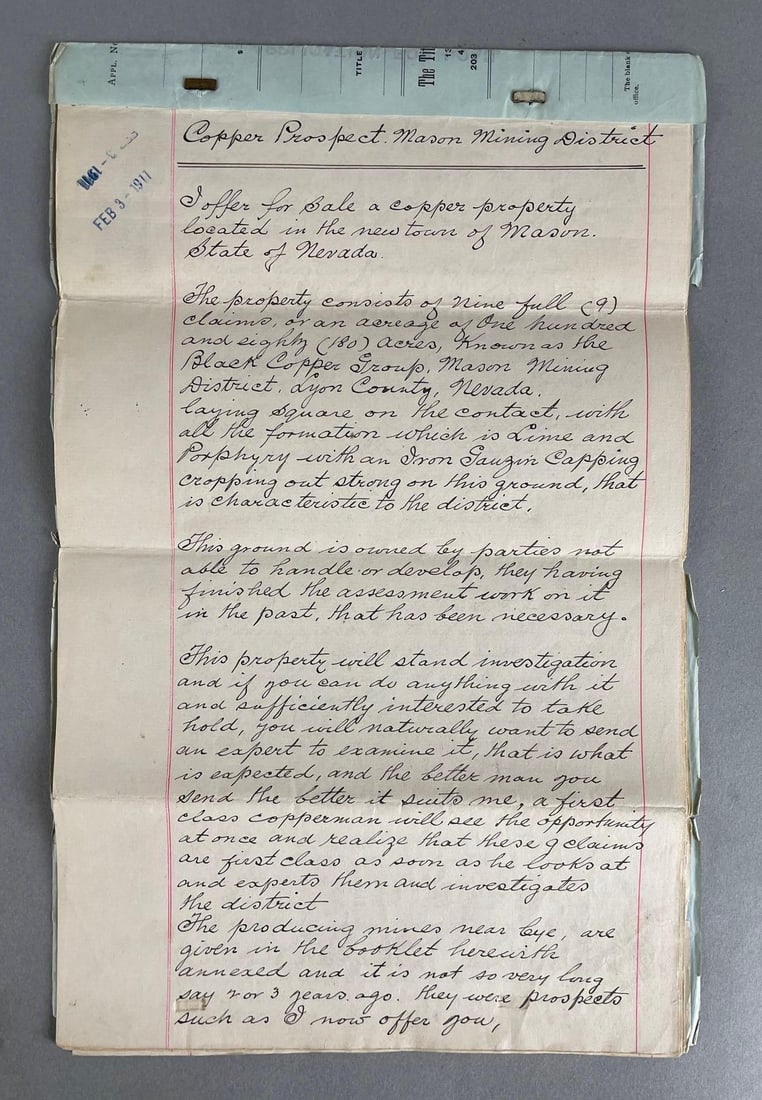 APPL. No
$
TITLE
The Tit
13
4
203
The blank
office.
Copper Prospect. Mason Mining District
FEB 3 - 1911
I offer for Sale a copper property
located in the new town of Mason.
State of Nevada.
The property consists of Nine full (9)
claims, or an acreage of One hundred
and eighty (180) Acres, Known as the
Black Copper Group, Mason Mining
District. Lyon County, Nevada.
laying Square on the contact, with
all the formation which is Lime and
Porphyry with an Iron Gauzin Capping
cropping out strong on this ground, that
is characteristic to the district.
This ground is owned by parties not
able to handle or develop, they having
finished the assessment work on it
in the past, that has been necessary.
This property will stand investigation
and if you can do anything with it
and sufficiently interested to take
hold, you will naturally want to send
an expert to examine it, that is what
is expected, and the better man you
send the better it suits me, a first
class copperman will see the opportunity
at once and realize that these 9 claims
are first class as soon as he looks at
and experts them and investigates
the district
The producing mines near bye, are
given in the booklet herewith
annexed and it is not so very long
say 2 or 3 years ago. they were prospects
such as I now offer you,